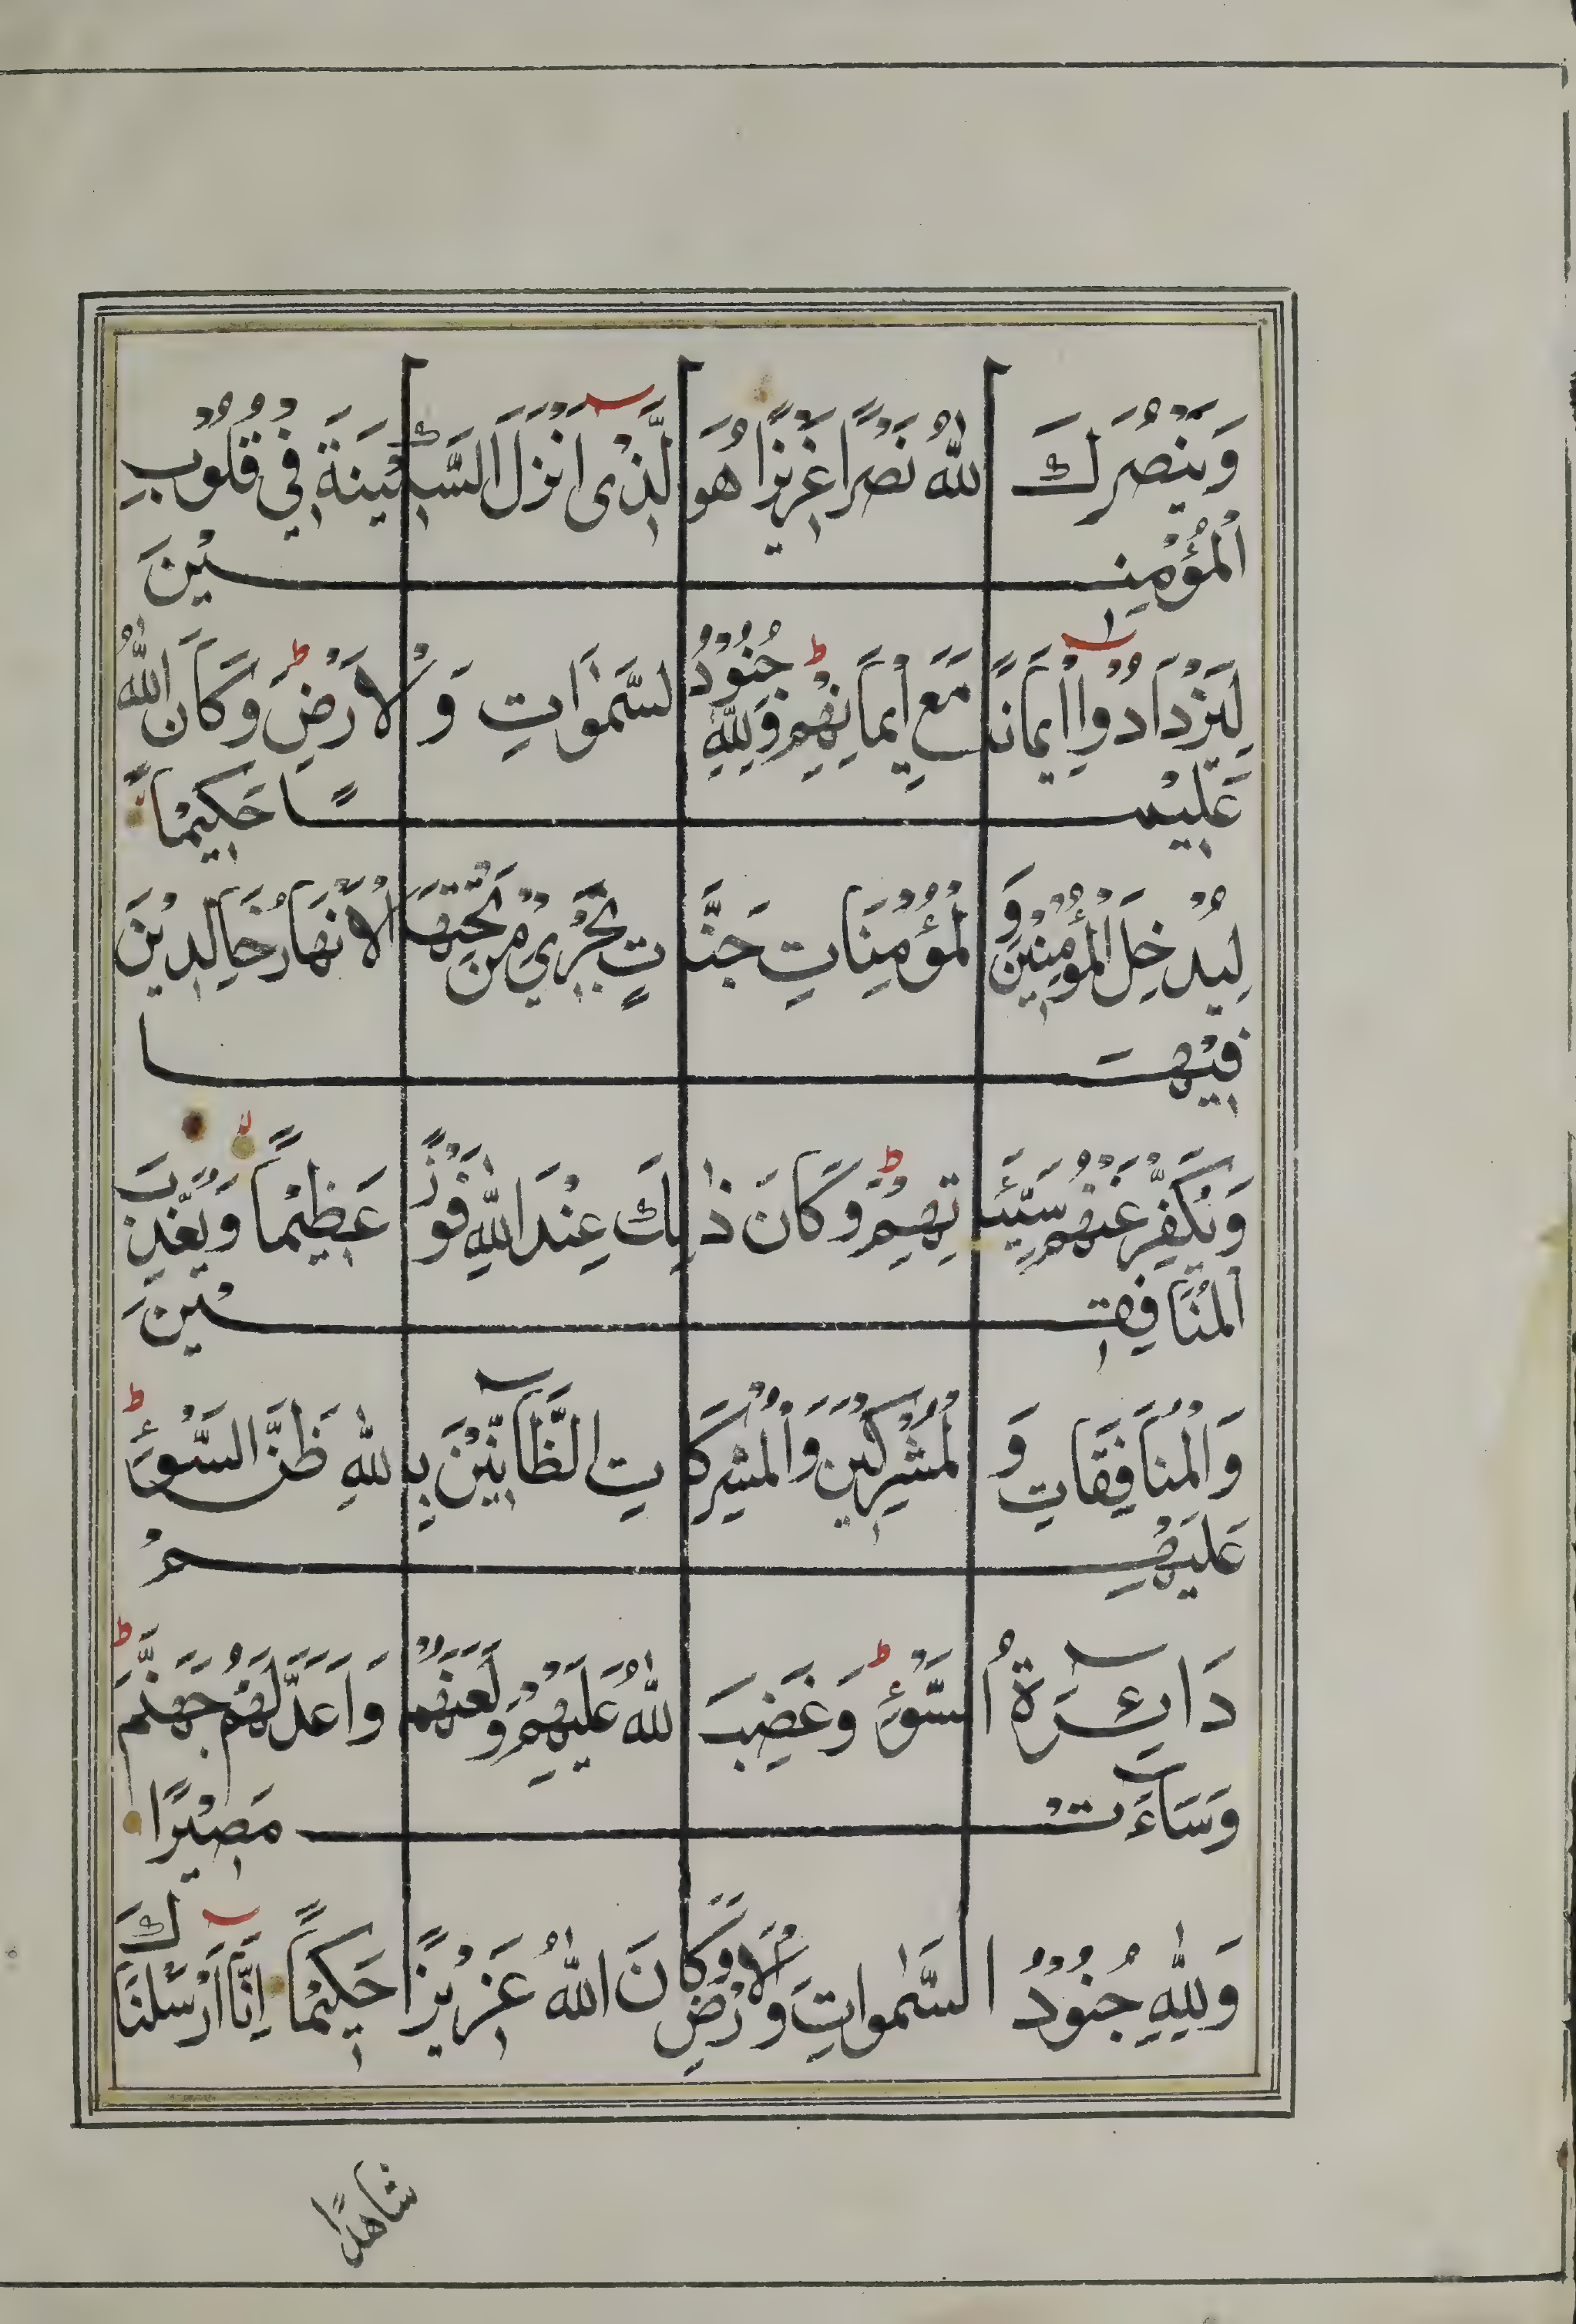 وَيَنْصُرَكَ اللّٰهُ نَصْرًا عَزِيْزًا هُوَ الَّذِىْ اَنْزَلَ السَّكِيْنَةَ فِيْ قُلُوْبِ
الْمُؤْمِنِيْنَ
لِيَزْدَادُوْا اِيْمَانًا مَعَ اِيْمَانِهِمْ ط وَلِلّٰهِ جُنُوْدُ السَّمٰوَاتِ وَالْاَرْضِ ط وَكَانَ اللّٰهُ
عَلِيْمًا حَكِيْمًا
لِيُدْخِلَ الْمُؤْمِنِيْنَ وَالْمُؤْمِنَاتِ جَنَّاتٍ تَجْرِيْ مِنْ تَحْتِهَا الْاَنْهَارُ خَالِدِيْنَ
فِيْهَا
وَيُكَفِّرَ عَنْهُمْ سَيِّئَاتِهِمْ ط وَكَانَ ذٰلِكَ عِنْدَ اللّٰهِ فَوْزًا عَظِيْمًا لا وَيُعَذِّبَ
الْمُنَافِقِيْنَ
وَالْمُنَافِقَاتِ وَالْمُشْرِكِيْنَ وَالْمُشْرِكَاتِ الظَّآنِّيْنَ بِاللّٰهِ ظَنَّ السَّوْءِ ط
عَلَيْهِمْ
دَائِرَةُ السَّوْءِ ط وَغَضِبَ اللّٰهُ عَلَيْهِمْ وَلَعَنَهُمْ وَاَعَدَّ لَهُمْ جَهَنَّمَ ط
وَسَآءَتْ مَصِيْرًا
وَلِلّٰهِ جُنُوْدُ السَّمٰوَاتِ وَالْاَرْضِ وَكَانَ اللّٰهُ عَزِيْزًا حَكِيْمًا اِنَّا اَرْسَلْنَاكَ
شاهدًا